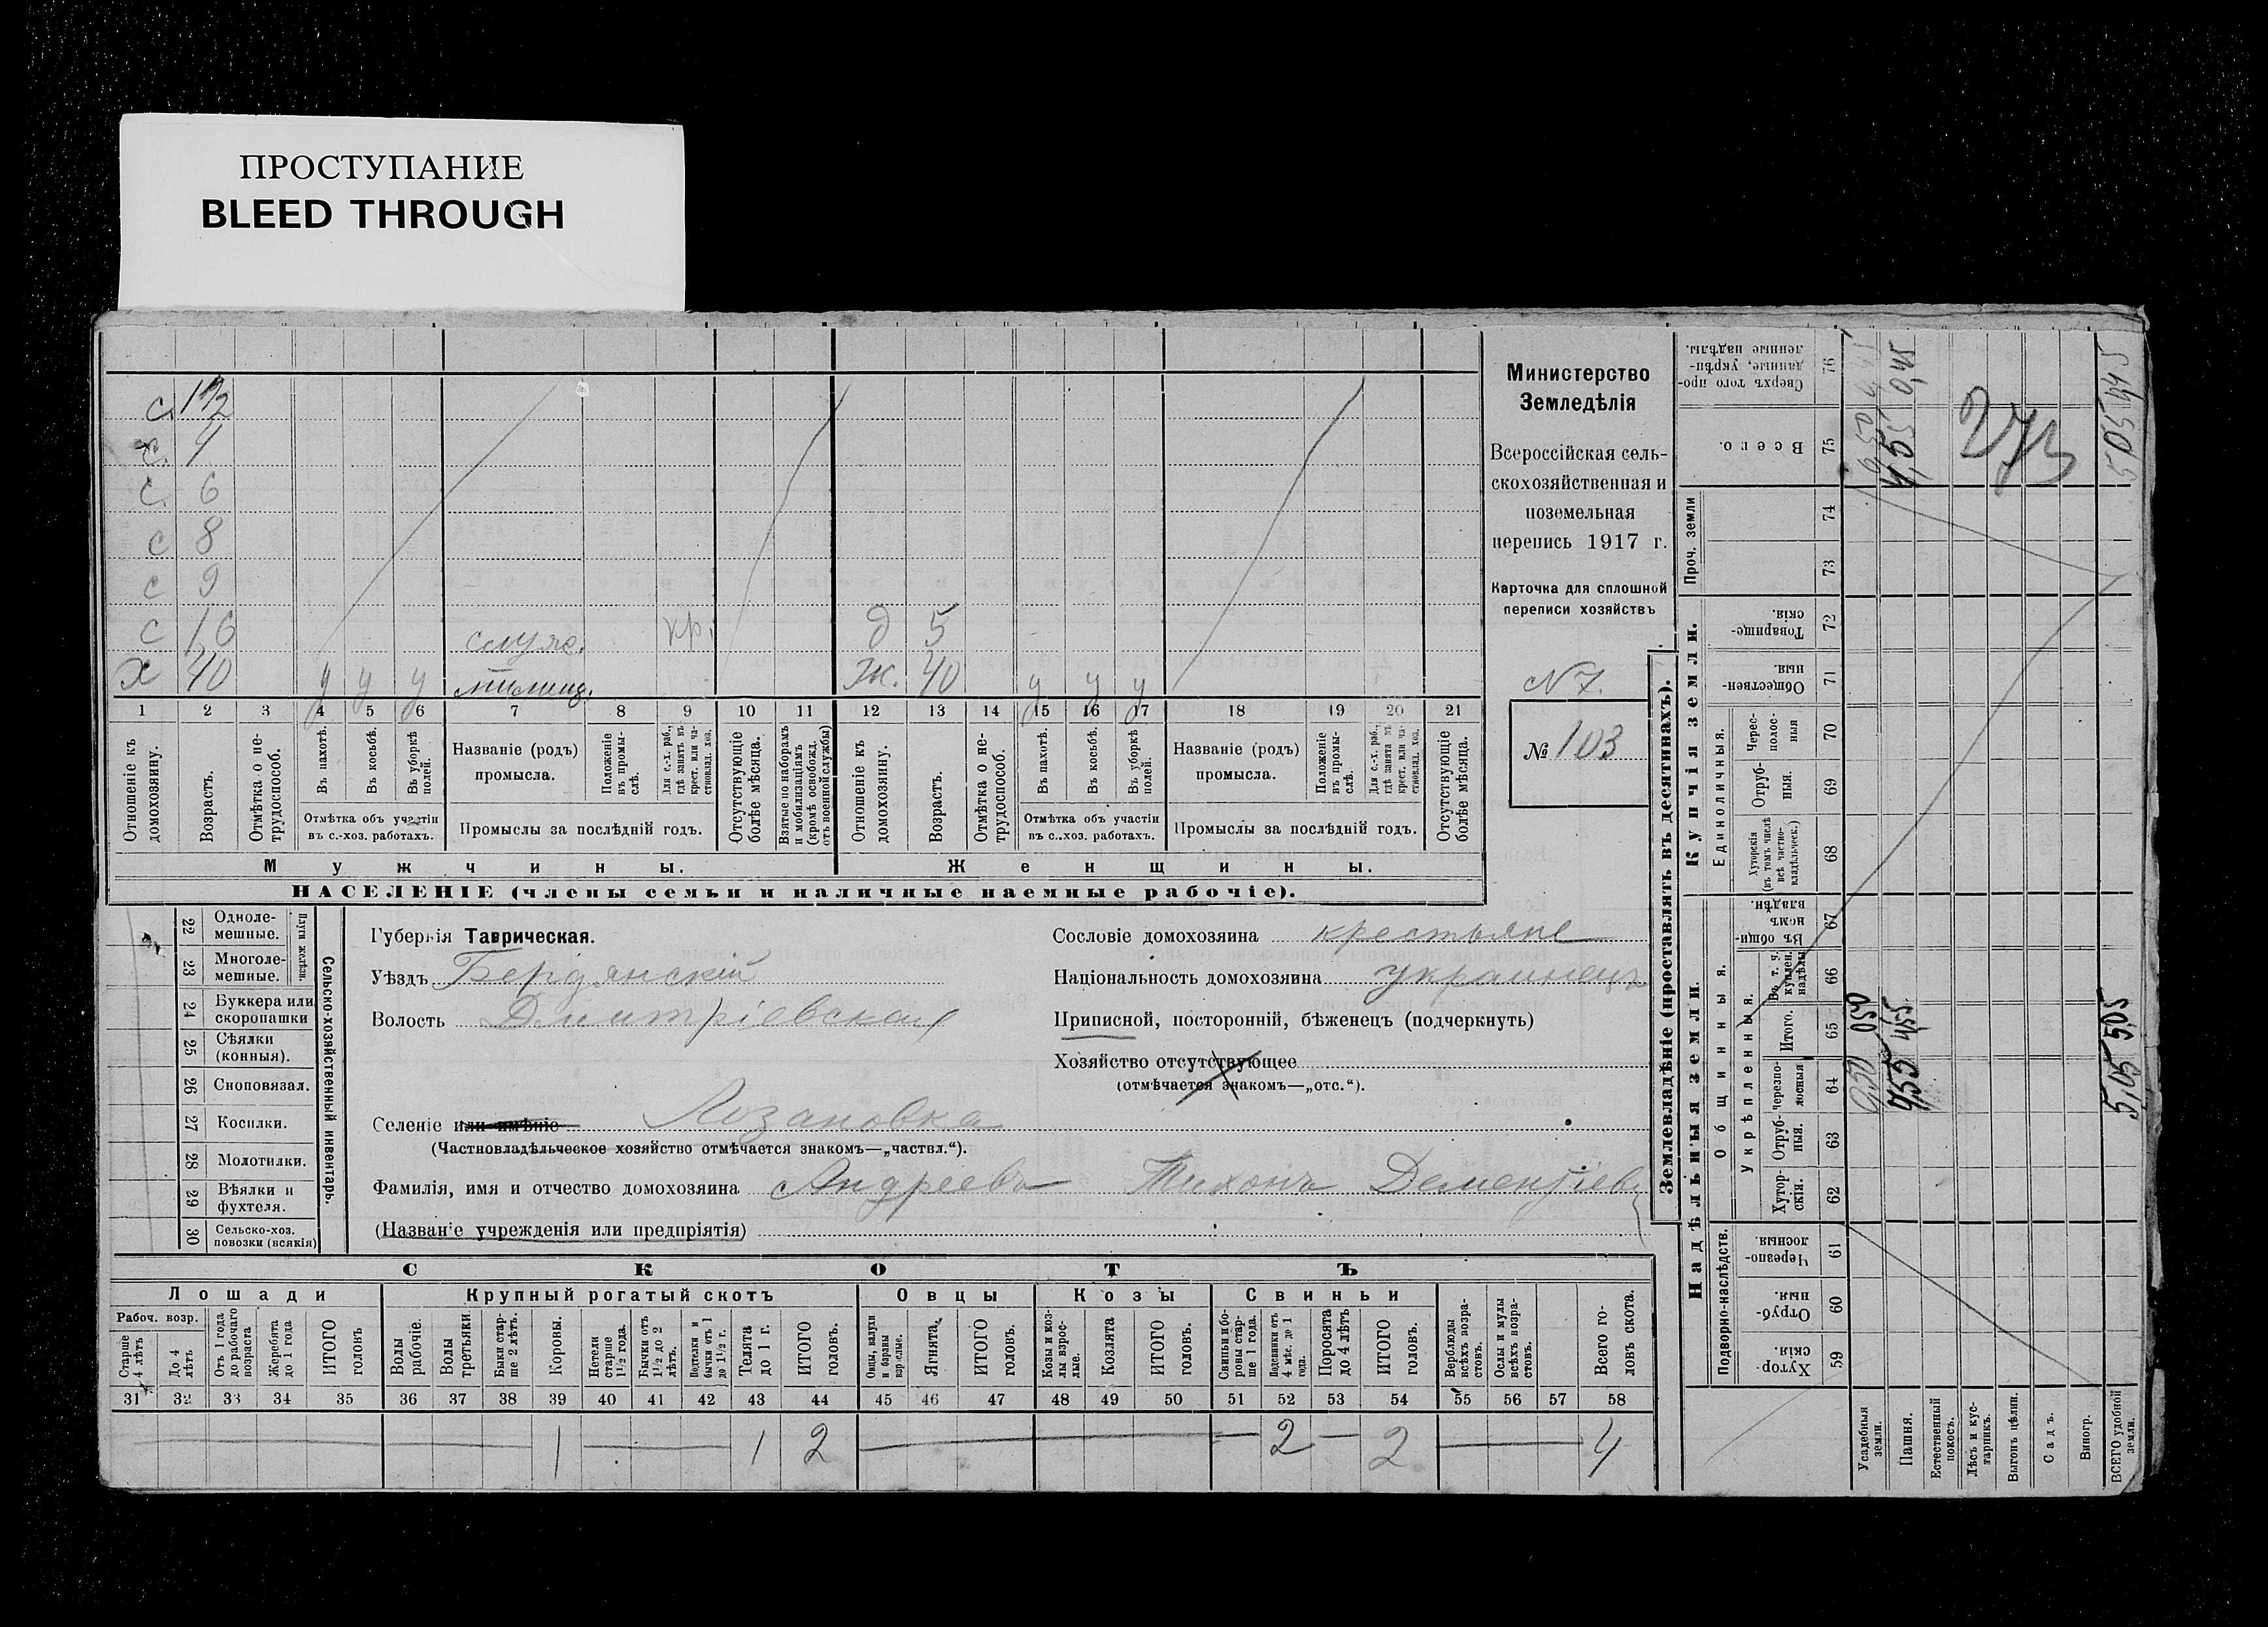 ПРОСТУПАНИЕ
BLEED THROUGH
с. 1½
с. 4
с. 6
с 8
с 9
с 16 служ. кр. д 5
х 40 у у у милиц. ж. 40 у у у
1 2 3 4 5 6 7 8 9 10 11 12 13 14 15 16 17 18 19 20 21
Отношеніе къ домохозяину.
Возрастъ.
Отмѣтка о не-трудоспособ.
Въ пахотѣ.
Въ косьбѣ.
Въ уборкѣ полей.
Отмѣтка объ участіи въ с.-хоз. работахъ.
Названіе (родъ) промысла.
Положеніе въ промыслѣ.
Для с.-х. раб., гдѣ занятъ въ крест. или частновлад. хоз.
Промыслы за послѣдній годъ.
Отсутствующіе болѣе мѣсяца.
Взятые по наборамъ и мобилизаціямъ (кромѣ освобожд. отъ военной службы)
Отношеніе къ домохозяину.
Возрастъ.
Отмѣтка о не-трудоспособ.
Въ пахотѣ.
Въ косьбѣ.
Въ уборкѣ полей.
Отмѣтка объ участіи въ с.-хоз. работахъ.
Названіе (родъ) промысла.
Положеніе въ промыслѣ.
Для с.-х. раб., гдѣ занята въ крест. или частновлад. хоз.
Промыслы за послѣдній годъ.
Отсутствующіе болѣе мѣсяца.
Мужчины. Женщины.
НАСЕЛЕНІЕ (члены семьи и наличные наемные рабочіе).
Министерство
Земледѣлія
Всероссійская сель-
скохозяйственная и
поземельная
перепись 1917 г.
Карточка для сплошной
переписи хозяйствъ
N 7.
№ 103
22 Одноле-мешные.
23 Многоле-мешные.
Плуги желѣзн.
24 Буккера или скоропашки
25 Сѣялки (конныя).
26 Сноповязал.
27 Косилки.
28 Молотилки.
29 Вѣялки и фухтеля.
30 Сельско-хоз. повозки (всякія)
Сельско-хозяйственный инвентарь.
Губернія Таврическая.
Уѣздъ Бердянскій
Волость Дмитріевская
Селеніе или имѣніе Лозановка
(Частновладѣльческое хозяйство отмѣчается знакомъ—„частвл.“).
Фамилія, имя и отчество домохозяина Андреевъ Тихонъ Дементіев
(Названіе учрежденія или предпріятія)
Сословіе домохозяина крестьяне
Національность домохозяина украинецъ
Приписной, посторонній, бѣженецъ (подчеркнуть)
Хозяйство отсутствующее
(отмѣчается знакомъ—„отс.“).
СКОТЪ
Лошади Крупный рогатый скотъ Овцы Козы Свиньи
Рабоч. возр.
Старше 4 лѣтъ
До 4 лѣтъ
Отъ 1 года до рабочаго возраста
Жеребята до 1 года
ИТОГО головъ
Волы рабочіе.
Волы третьяки.
Быки старше 2 лѣтъ.
Коровы.
Нетели старше 1½ года.
Бычки отъ 1½ до 2 лѣтъ.
Подтелки и бычки отъ 1 до 1½ г.
Телята до 1 г.
ИТОГО головъ.
Овцы, валухи и бараны взрослые.
Ягнята.
ИТОГО головъ.
Козы и козлы взрослые.
Козлята
ИТОГО головъ.
Свиньи и боровы старше 1 года.
Подсвинки отъ 4 мѣс. до 1 года.
Поросята до 4 лѣтъ
ИТОГО головъ.
Верблюды всѣхъ возрастовъ.
Ослы и мулы всѣхъ возрастовъ.
Всего головъ скота.
31 32 33 34 35 36 37 38 39 40 41 42 43 44 45 46 47 48 49 50 51 52 53 54 55 56 57 58
1 1 2 2 2 4
Землевладѣніе (проставлять въ десятинахъ).
Надѣльныя земли. Купчія земли. Проч. земли
Подворно-наслѣдств. Общинныя. Единоличныя.
Укрѣпленныя.
Хуторскія. 59
Отрубныя. 60
Черезполосныя. 61
Хуторскія. 62
Отрубныя. 63
Черезполосныя 64
Итого. 65
Въ т. ч. куплен. надѣлы 66
Въ общинномъ владѣн. 67
Хуторскія (въ томъ числѣ всѣ частновладѣльческ.) 68
Отрубныя. 69
Черезполосныя 70
Общественныя. 71
Товарищескія. 72
73
74
Всего. 75
Сверхъ того проданные, укрѣпленные надѣлы. 76
Усадебныя земли. 0,50 0,50 0,50
Пашня. 4,55 4,55 4,55 0,45
Естественный покосъ.
Лѣсъ и кустарникъ.
Выгонъ цѣлин.
Садъ.
Виногр.
ВСЕГО удобной земли. 5,05 5,05 5,05
273